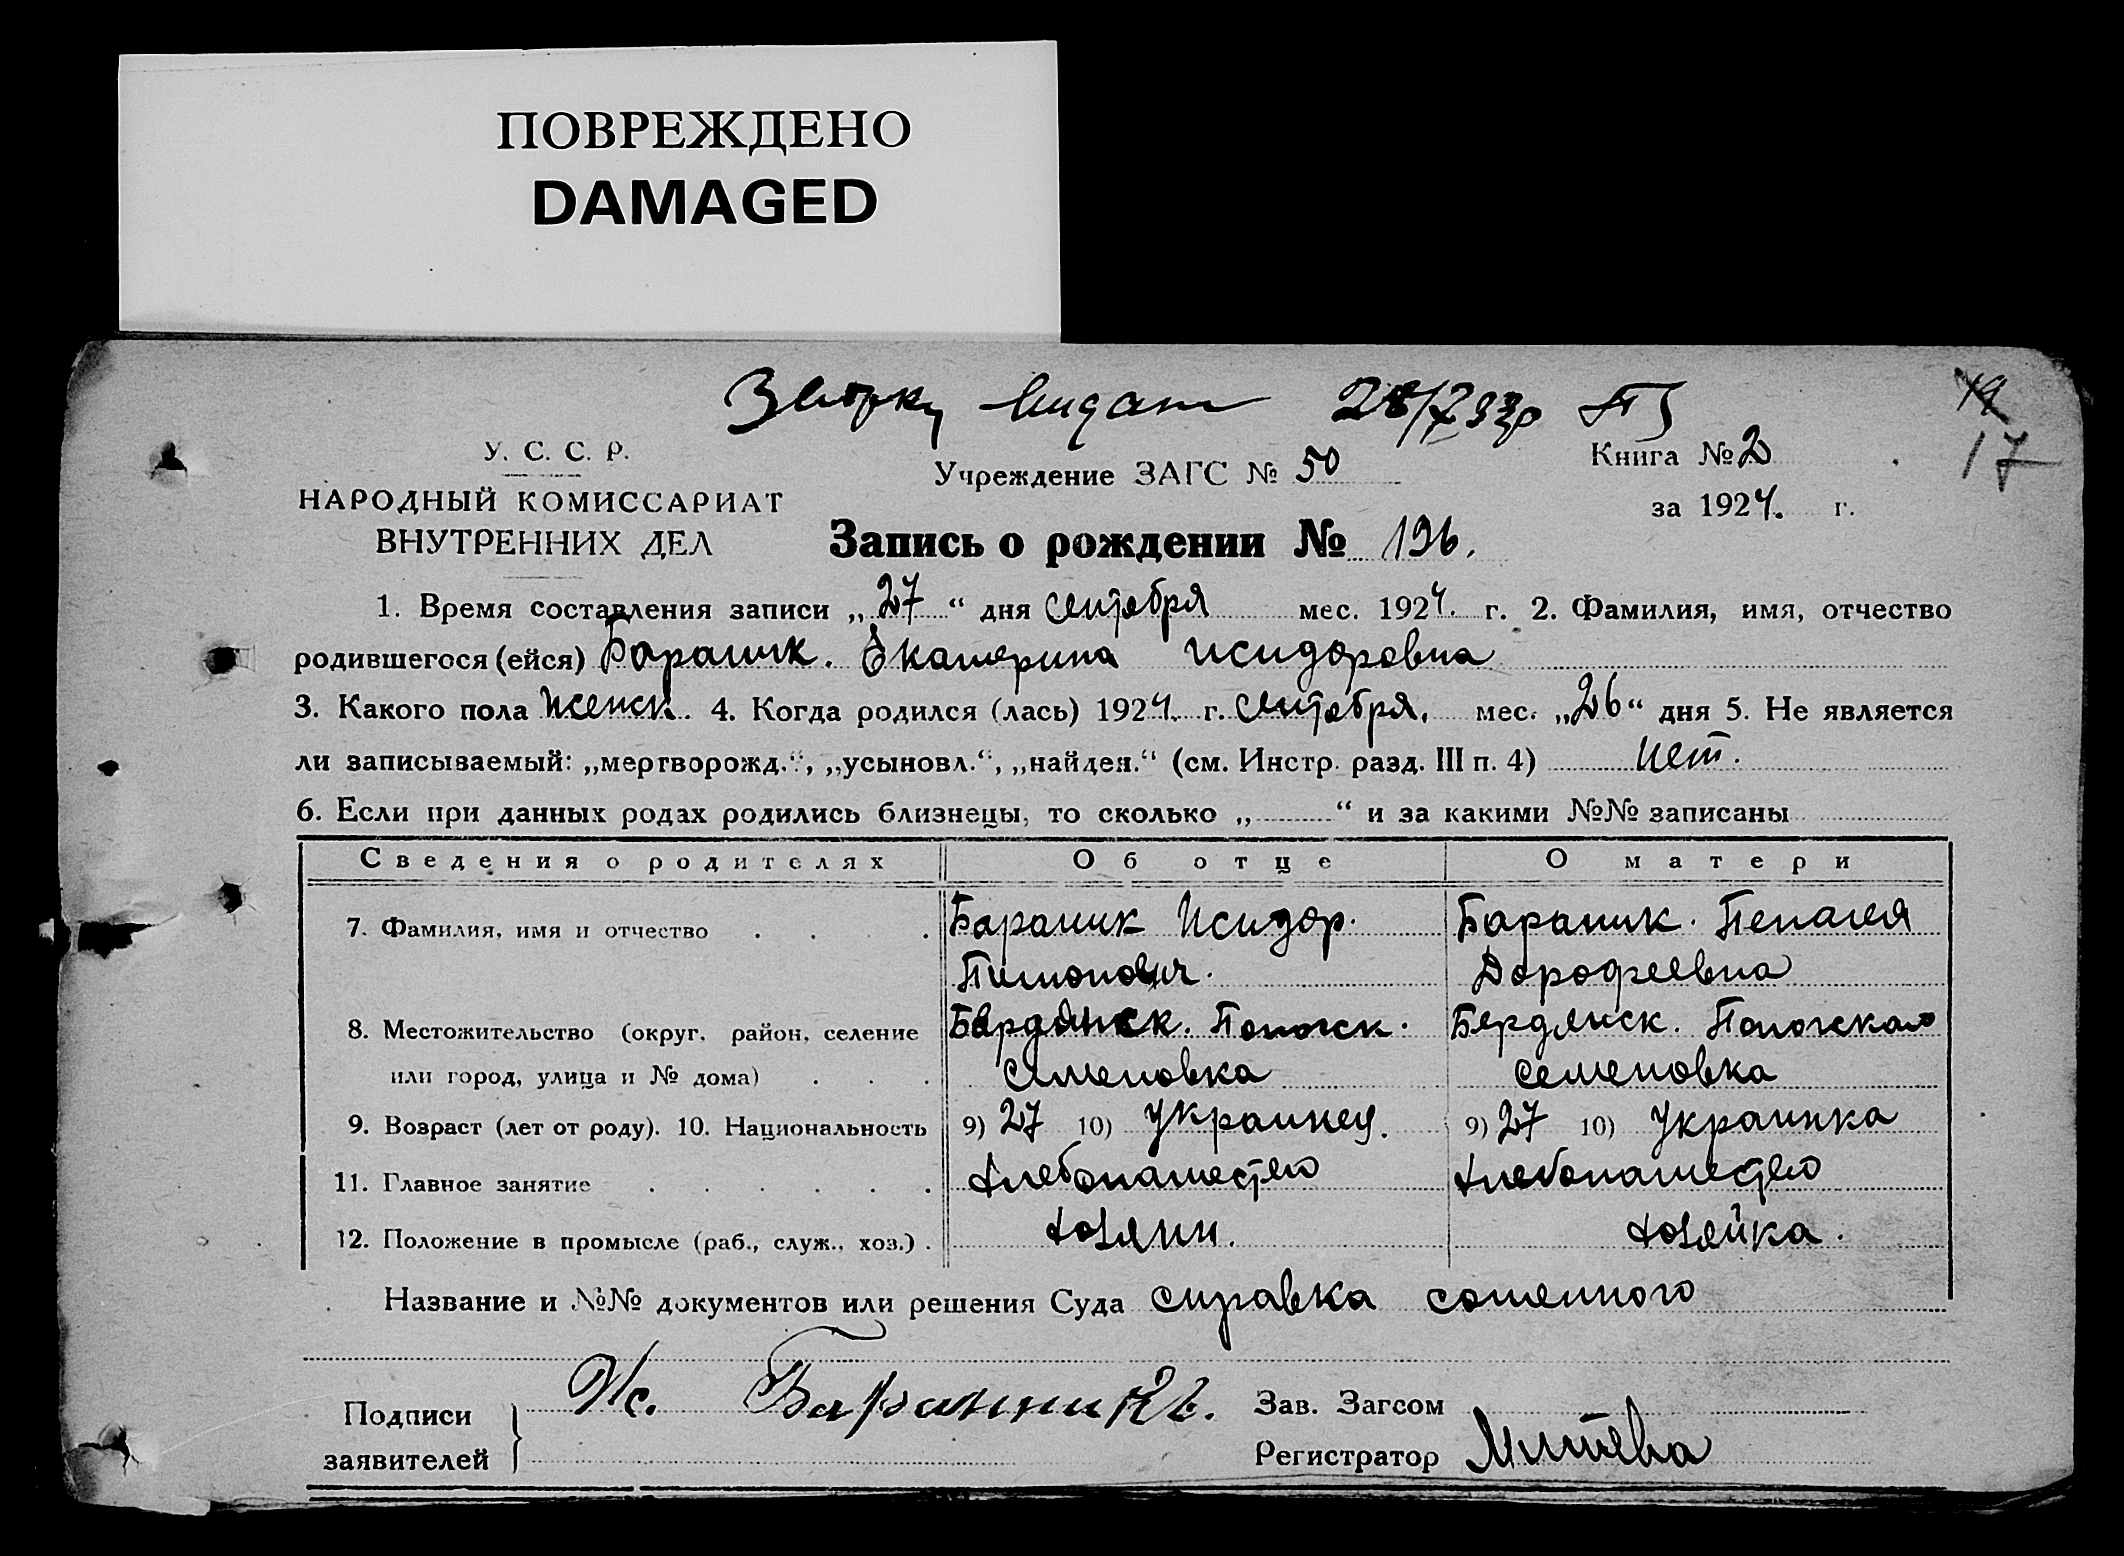 ПОВРЕЖДЕНО
DAMAGED
видан 28/X 33р
17
У. С. С. Р.
НАРОДНЫЙ КОМИССАРИАТ
ВНУТРЕННИХ ДЕЛ
Учреждение ЗАГС № 50
Книга № 2
за 1924. г.
Запись о рождении № 196.
1. Время составления записи „27“ дня сентября мес. 1924. г. 2. Фамилия, имя, отчество
родившегося (ейся) Бараник. Екатерина Исидоровна
3. Какого пола женск. 4. Когда родился (лась) 1924. г. сентября, мес. „26“ дня 5. Не является
ли записываемый: „мертворожд.“, „усыновл.“, „найден.“ (см. Инстр. разд. III п. 4) нет.
6. Если при данных родах родились близнецы, то сколько „ “ и за какими №№ записаны
Сведения о родителях Об отце О матери
7. Фамилия, имя и отчество Бараник Исидор. Бараник. Пелагея
Дорофеевна
8. Местожительство (округ, район, селение Бердянск. Пологск. Бердянск. Пологская
или город, улица и № дома) Семеновка Семеновка
9. Возраст (лет от роду). 10. Национальность 9) 27 10) Украинец. 9) 27 10) Украинка
11. Главное занятие Хлебопашество Хлебопашество
12. Положение в промысле (раб., служ., хоз.) Хозяин. Хозяйка.
Название и №№ документов или решения Суда справка
Подписи
заявителей
Ис. Баранникъ.
Зав. Загсом
Регистратор